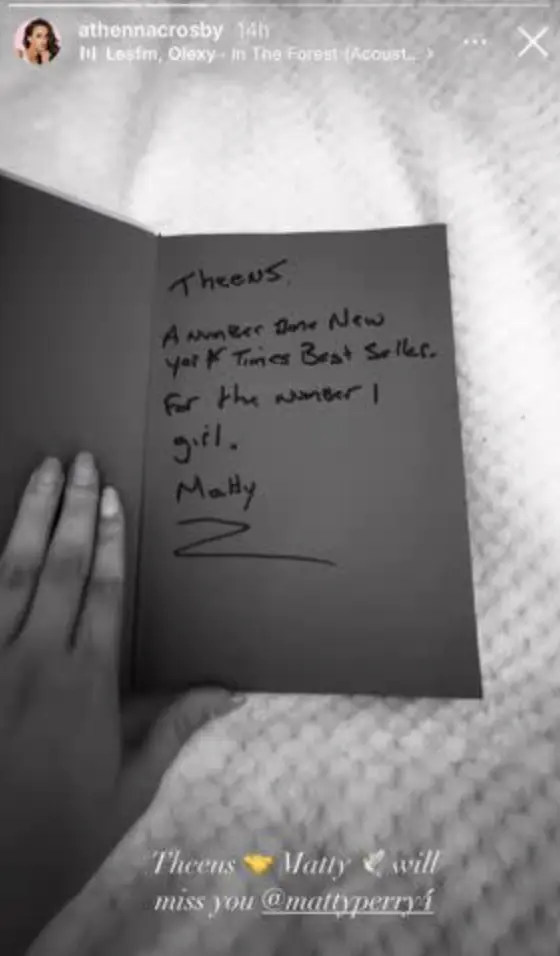 athennacrosby 14h
Lesfm, Olexy - In The Forest (Acoust... >
Theens.
A number One New
York Times Best Seller.
For the number 1
girl.
Matty
Theens 🤝 Matty 🕊️ will
miss you @mattyperry4